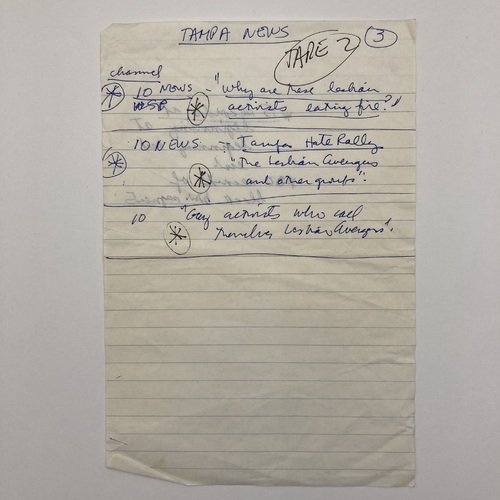 TAMPA NEWS
TAPE 2
3
channel
10 NEWS "Why are these lesbian
WTSP activists eating fire?"
10 NEWS Tampa Hate Rally
"The Lesbian Avengers
and other groups".
10 "Gay activists who call
themselves Lesbian Avengers".